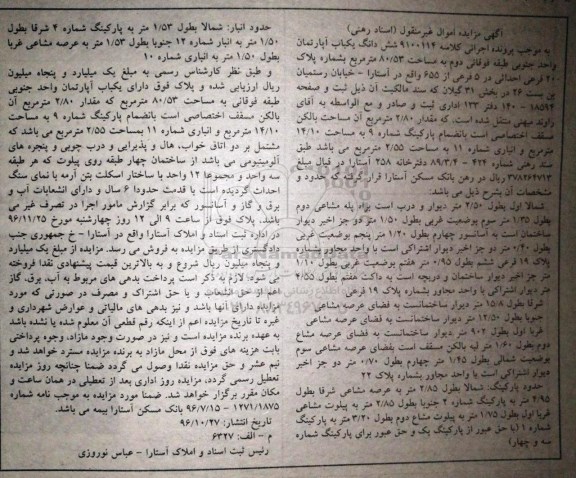 آگهی مزایده اموال غیرمنقول (اسناد رهنی)
به موجب پرونده اجرائی کلاسه ۹۱۰۰۱۱۴ شش دانگ یکباب آپارتمان
واحد جنوبی طبقه فوقانی دوم به مساحت ۸۰/۵۳ مترمربع بشماره پلاک
۲۰ فرعی احداثی در ۵ فرعی از ۶۵۵ واقع در آستارا - خیابان رستمیان
بن بست ۲۶ در بخش ۳۱ گیلان که سند مالکیت آن ذیل ثبت و صفحه
۱۸۵۹۴ - ۱۴۰ دفتر ۱۳۳ اداری ثبت و صادر و مع الواسطه به آقای
راوند میهنی منتقل شده است. که مقدار ۲/۸۰ مترمربع آن مساحت بالکن
مسقف اختصاصی است بانضمام پارکینگ شماره ۹ به مساحت ۱۴/۱۰
مترمربع و انباری شماره ۱۱ به مساحت ۲/۵۵ مترمربع می باشد طبق
سند رهنی شماره ۴۲۴ - ۸۹/۳/۴ دفترخانه ۲۵۸ آستارا در قبال مبلغ
۳۷۸۲۶۴۷۱۳ ریال در رهن بانک مسکن آستارا قرار گرفته که حدود و
مشخصات آن بشرح ذیل می باشد.
شمالا اول بطول ۲/۵۰ متر دیوار و درب است براه پله مشاعی دوم
بطول ۱/۳۵ متر سوم بوضعیت غربی بطول ۱/۵۰ متر دو جز اخیر دیوار
ساختمان است به آسانسور چهارم بطول ۱/۲۰ متر پنجم بوضعیت غربی
بطول ۰/۲۰ متر دو جز اخیر دیوار اشتراکی است با واحد مجاور بشماره
پلاک ۱۹ فرعی ششم بطول ۰/۹۵ متر هفتم بوضعیت غربی بطول ۱/۱۰
متر جز اخیر دیوار ساختمان و دریچه است به داکت هفتم بطول ۲/۵۵
متر دیوار اشتراکی با واحد مجاور بشماره پلاک ۱۹ فرعی
شرقا بطول ۱۵/۸ متر دیوار ساختمانست به فضای عرصه مشاعی
جنوبا بطول ۱۲/۵۰ متر دیوار ساختمانست به فضای عرصه مشاعی
غربا اول بطول ۹/۲ متر دیوار ساختمانست به فضای عرصه مشاع
دوم بطول ۱/۶۰ متر لبه بالکن مسقف است بفضای عرصه مشاعی سوم
بوضعیت شمالی بطول ۱/۴۵ متر چهارم بطول ۰/۷۰ متر دو جز اخیر
دیوار اشتراکی است با واحد مجاور بشماره پلاک ۲۲
حدود پارکینگ: شمالا بطول ۲/۸۵ متر به عرصه مشاعی شرقا بطول
۴/۹۵ متر به پارکینگ شماره ۲ جنوبا بطول ۲/۸۵ متر به پیلوت مشاعی
غربا اول بطول ۱/۷۵ متر به پیلوت مشاع دوم بطول ۳/۲۰ متر به پارکینگ
شماره ۱ (با حق عبور از پارکینگ یک و حق عبور برای پارکینگ شماره
سه و چهار)
حدود انبار: شمالا بطول ۱/۵۳ متر به پارکینگ شماره ۴ شرقا بطول
۱/۵۰ متر به انبار شماره ۱۲ جنوبا بطول ۱/۵۳ متر به عرصه مشاعی غربا
بطول ۱/۵۰ متر به انباری شماره ۱۰
و طبق نظر کارشناس رسمی به مبلغ یک میلیارد و پنجاه میلیون
ریال ارزیابی شده و پلاک فوق دارای یکباب آپارتمان واحد جنوبی
طبقه فوقانی به مساحت ۸۰/۵۳ مترمربع که مقدار ۲/۸۰ مترمربع آن
بالکن مسقف اختصاصی است بانضمام پارکینگ شماره ۹ به مساحت
۱۴/۱۰ مترمربع و انباری شماره ۱۱ بمساحت ۲/۵۵ مترمربع می باشد که
مشتمل بر دو اتاق خواب، هال و پذیرایی و درب چوبی و پنجره های
آلومینیومی می باشد از ساختمان چهار طبقه روی پیلوت که هر طبقه
سه واحد و مجموعا ۱۲ واحد با ساختار اسکلت بتن آرمه با نمای سنگ
احداث گردیده است با قدمت حدودا ۶ سال و دارای انشعابات آب و
برق و گاز و آسانسور که برابر گزارش مامور اجرا در تصرف غیر می
باشد. پلاک فوق از ساعت ۹ الی ۱۲ روز چهارشنبه مورخ ۹۶/۱۱/۲۵
در اداره ثبت اسناد و املاک آستارا واقع در آستارا - خ جمهوری جنب
دادگستری از طریق مزایده به فروش می رسد. مزایده از مبلغ یک میلیارد
و پنجاه میلیون ریال شروع و به بالاترین قیمت پیشنهادی نقدا فروخته
می شود. لازم به ذکر است پرداخت بدهی های مربوط به آب، برق، گاز
اعم از حق انشعاب و یا حق اشتراک و مصرف در صورتی که مورد
مزایده دارای آنها باشد و نیز بدهی های مالیاتی و عوارض شهرداری و
غیره تا تاریخ مزایده اعم از اینکه رقم قطعی آن معلوم شده یا نشده باشد
به عهده برنده مزایده است و نیز در صورت وجود مازاد، وجوه پرداختی
بابت هزینه های فوق از محل مازاد به برنده مزایده مسترد خواهد شد و
نیم عشر و حق مزایده نقدا وصول می گردد ضمنا چنانچه روز مزایده
تعطیل رسمی گردد، مزایده روز اداری بعد از تعطیلی در همان ساعت و
مکان مقرر برگزار خواهد شد. ضمنا مورد مزایده به موجب نامه شماره
۱۲۷۱/۱۸۷۵ - ۹۶/۷/۱۵ بانک مسکن آستارا بیمه می باشد.
تاریخ انتشار: ۹۶/۱۰/۲۷
م - الف: ۶۳۲۷
رئیس ثبت اسناد و املاک آستارا - عباس نوروزی